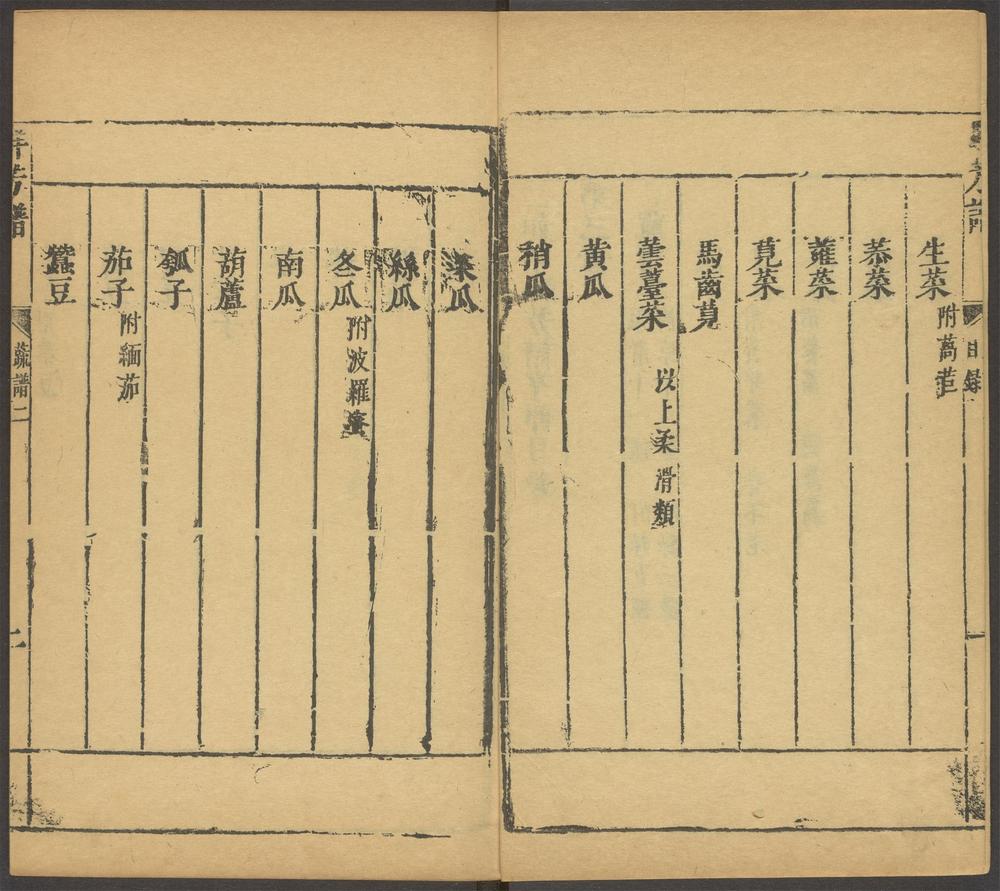 生菜 附萵苣
菾菜
蕹菜
莧菜
馬齒莧
蕓薹菜 以上柔滑類
黃瓜
稍瓜
菜瓜
絲瓜
冬瓜 附波羅蜜
南瓜
葫蘆
瓠子
茄子 附緬茄
蠶豆
群芳譜
目錄
一
群芳譜
蔬譜二
二